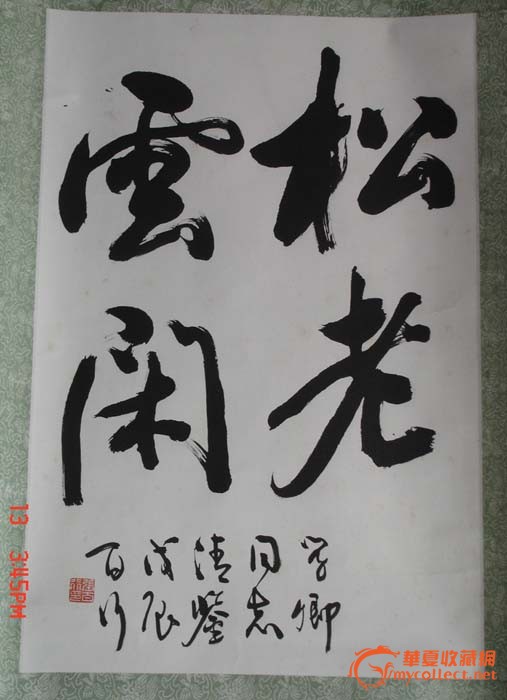 松老
雲閑
学卿
同志
清鑒
戊辰
百行
13 3:45PM
華夏收藏網
mycollect.net